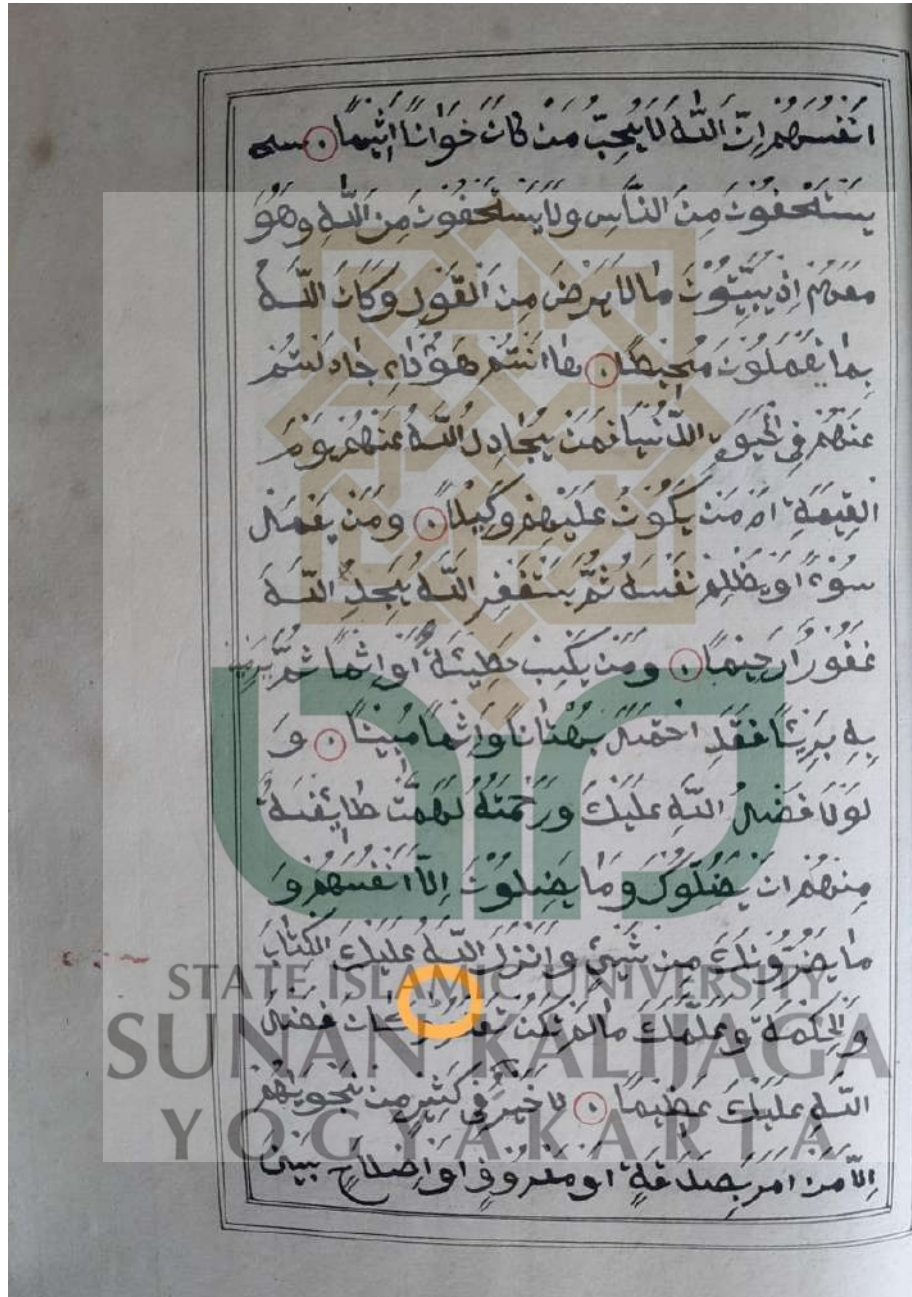 اَنْفُسَهُمْ اِنَّ اللّٰهَ لَا يُحِبُّ مَنْ كَانَ خَوَّانًا اَثِيْمًا
يَسْتَخْفُوْنَ مِنَ النَّاسِ وَلَا يَسْتَخْفُوْنَ مِنَ اللّٰهِ وَهُوَ
مَعَهُمْ اِذْ يُبَيِّتُوْنَ مَا لَا يَرْضٰ مِنَ الْقَوْلِ وَكَانَ اللّٰهُ
بِمَا يَعْمَلُوْنَ مُحِيْطًا هٰاَنْتُمْ هٰؤُلَاءِ جَادَلْتُمْ
عَنْهُمْ فِي الْحَيٰوةِ الدُّنْيَا فَمَنْ يُجَادِلُ اللّٰهَ عَنْهُمْ يَوْمَ
الْقِيٰمَةِ اَمْ مَنْ يَكُوْنُ عَلَيْهِمْ وَكِيْلًا وَمَنْ يَعْمَلْ
سُوْءًا اَوْ يَظْلِمْ نَفْسَهُ ثُمَّ يَسْتَغْفِرِ اللّٰهَ يَجِدِ اللّٰهَ
غَفُوْرًا رَحِيْمًا وَمَنْ يَكْسِبْ خَطِيْئَةً اَوْ اِثْمًا ثُمَّ يَرْمِ
بِهِ بَرِيْئًا فَقَدِ احْتَمَلَ بُهْتَانًا وَاِثْمًا مُبِيْنًا وَ
لَوْلَا فَضْلُ اللّٰهِ عَلَيْكَ وَرَحْمَتُهُ لَهَمَّتْ طَائِفَةٌ
مِنْهُمْ اَنْ يُضِلُّوْكَ وَمَا يُضِلُّوْنَ اِلَّا اَنْفُسَهُمْ وَ
مَا يَضُرُّوْنَكَ مِنْ شَيْءٍ وَاَنْزَلَ اللّٰهُ عَلَيْكَ الْكِتَابَ
وَالْحِكْمَةَ وَعَلَّمَكَ مَا لَمْ تَكُنْ تَعْلَمُ وَكَانَ فَضْلُ
اللّٰهِ عَلَيْكَ عَظِيْمًا لَا خَيْرَ فِي كَثِيْرٍ مِنْ نَجْوٰيهُمْ
اِلَّا مَنْ اَمَرَ بِصَدَقَةٍ اَوْ مَعْرُوْفٍ اَوْ اِصْلَاحٍ بَيْنَ
STATE ISLAMIC UNIVERSITY
SUNAN KALIJAGA
YOGYAKARTA